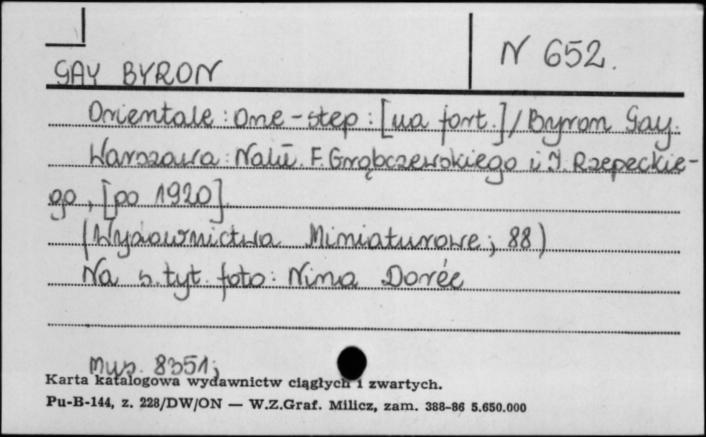 N 652.
GAY BYRON
Orientale : one-step : [na fort.] / Byron Gay.
Warszawa : Nakł. F. Grąbczewskiego i J. Rzepeckie-
go, [po 1920].
(Wydawnictwa Miniaturowe ; 88)
Na s. tyt. foto : Nina Dorée
Mus. 8351;
Karta katalogowa wydawnictw ciągłych i zwartych.
Pu-B-144, z. 228/DW/ON — W.Z.Graf. Milicz, zam. 388-86 5.650.000